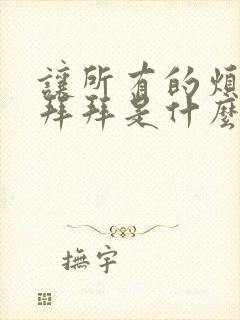 讓所有的煩
拜拜是什麼
撫宇